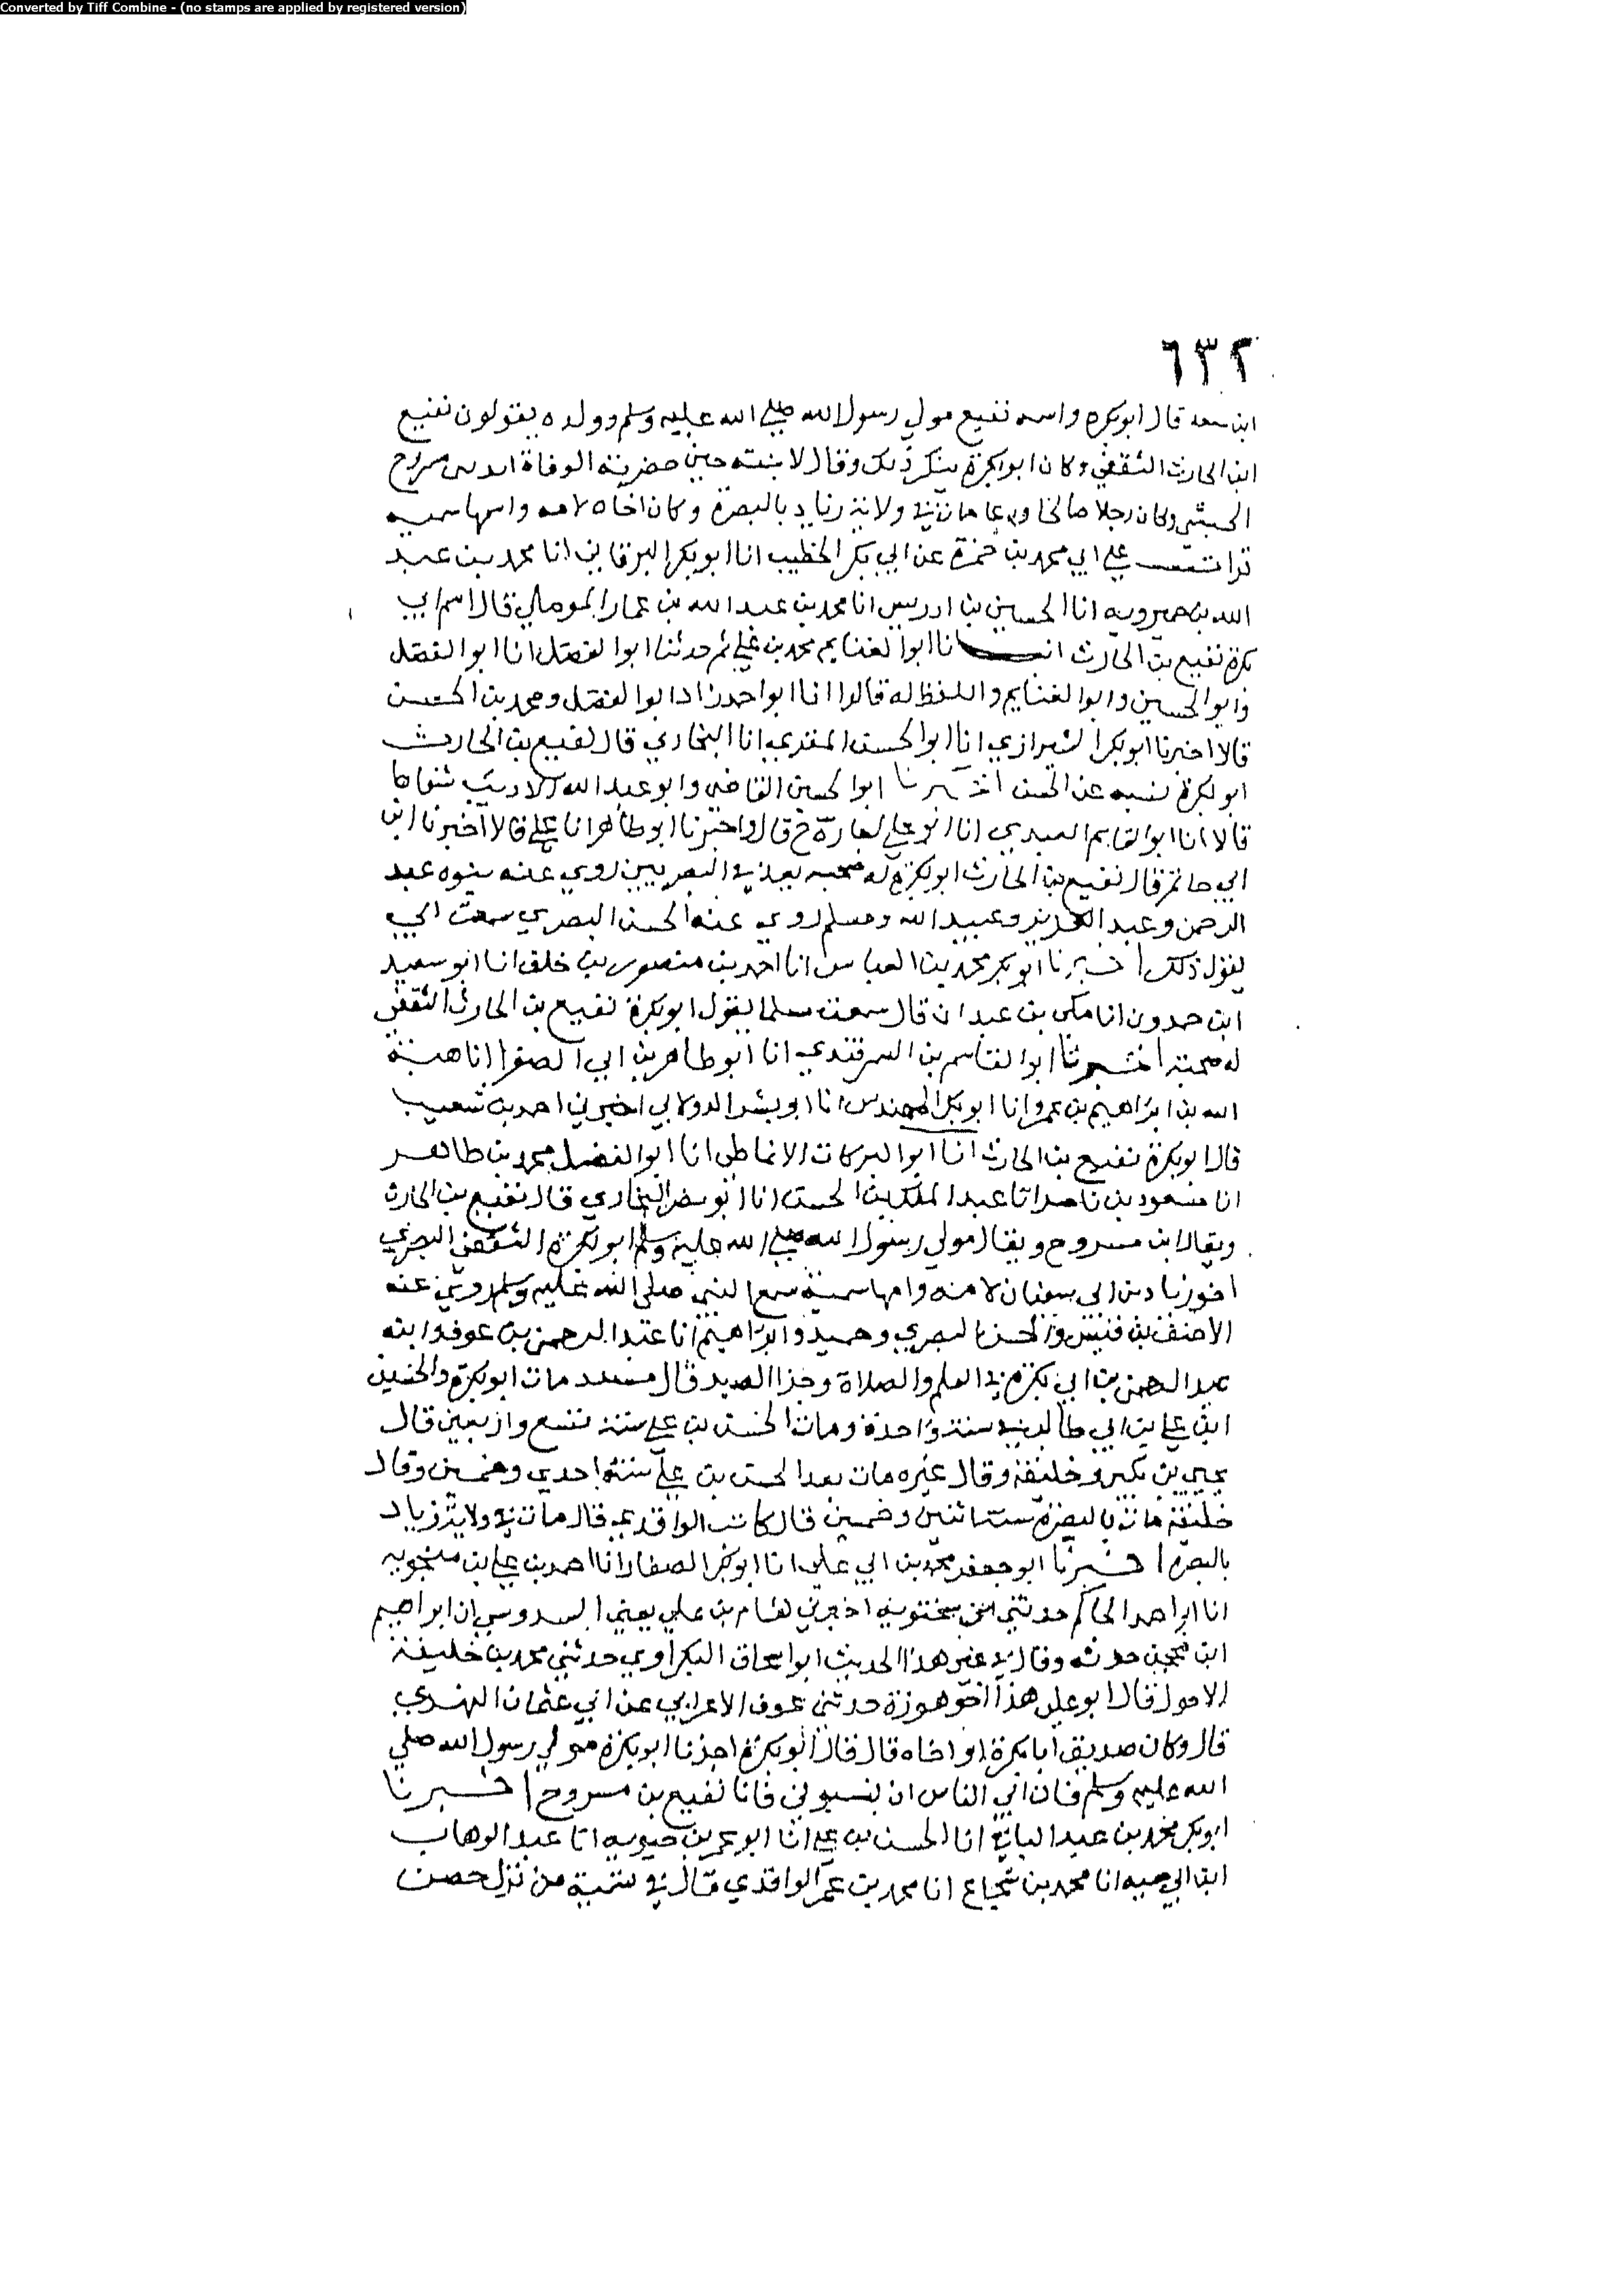 Converted by Tiff Combine - (no stamps are applied by registered version)
٦٣٢
ابن سعد قال ابو بكره واسمه نفيع مولى رسول الله صلى الله عليه وسلم وولده يقولون نفيع
ابن الحارث الثقفي وكان ابو بكرة ينكر ذلك وقال لابنته حين حضرته الوفاة مسروح
الحبشي وكان رجلا صالحا ورعا مات في ولاية زياد بالبصرة وكان اخاه لامه واسمها سميه
قرات على ابي محمد بن حمزة عن ابي بكر الخطيب انا ابو بكر البرقاني انا محمد بن عبد
الله بن خميرويه انا الحسين بن ادريس انا محمد بن عبد الله بن عمار الموصلي قال اسم ابي
بكرة نفيع بن الحارث انبانا ابو الغنايم محمد بن علي ثم حدثنا ابو الفضل انا ابو الفضل
وابو الحسين وابو الغنايم واللفظ له قالوا انا ابو احمد زاد ابو الفضل ومحمد بن الحسن
قالا اخبرنا ابو بكر الشيرازي انا ابو الحسن المقري انا البخاري قال نفيع بن الحارث
ابو بكرة نسبه عن الحسن اخبرنا ابو الحسين القاضي وابو عبد الله الاديب شفاها
قالا انا ابو القاسم العبدي انا ابو علي اجازة ح قال واخبرنا ابو طاهر انا علي قالا اخبرنا ابن
ابي حاتم قال نفيع بن الحارث ابو بكرة له صحبه يعد في البصريين روى عنه بنوه عبد
الرحمن وعبد العزيز وعبيد الله ومسلم روى عنه الحسن البصري سمعت ابي
يقول ذلك اخبرنا ابو بكر محمد بن العباس انا احمد بن منصور بن خلف انا ابو سعيد
ابن حمدون انا مكي بن عبدان قال سمعت مسلما يقول ابو بكرة نفيع بن الحارث الثقفي
له صحبة اخبرنا ابو القاسم بن السمرقندي انا ابو طاهر بن ابي الصقر انا هبة
الله بن ابراهيم بن عمر وانا ابو بكر المهندس انا ابو بشر الدولابي اخبرني احمد بن شعيب
قال ابو بكرة نفيع بن الحارث انا ابو البركات الانماطي انا ابو الفضل محمد بن طاهر
انا مسعود بن ناصر انا عبد الملك بن الحسن انا ابو نصر البخاري قال نفيع بن الحارث
ويقال ابن مسروح ويقال مولى رسول الله صلى الله عليه وسلم ابو بكرة الثقفي البصري
اخو زياد بن ابي سفيان لامه وامها سمية سمع النبي صلى الله عليه وسلم روى عنه
الاحنف بن قيس والحسن البصري وحميد وابراهيم انا عبد الرحمن بن عوف وابنه
عبد الرحمن بن ابي بكرة في العلم والصلاة وجزا الصيد قال مسدد مات ابو بكرة والحسين
ابن علي بن ابي طالب في سنة واحدة ومات الحسن بن علي سنة تسع واربعين قال
يحيى بن بكير وخليفة وقال غيره مات بعد الحسن بن علي سنة احدى وخمسين وقال
خليفة مات بالبصرة سنة اثنتين وخمسين قال كاتب الواقدي قال مات في ولاية زياد
بالبصرة اخبرنا ابو جعفر محمد بن ابي علي انا ابو بكر الصفار انا احمد بن علي بن منجويه
انا ابو احمد الحاكم حدثني سختويه اخبرني هشام بن علي يعني السدوسي ان ابراهيم
ابن حدثه وقال في غير هذا الحديث ابو اسحاق البكراوي حدثني محمد بن خليفة
الاحول قال ابو علي هذا اخو هوذة حدثني عوف الاعرابي عن ابي عثمان النهدي
قال وكان صديق ابا بكرة او اخاه قال قال ابو بكرة ابو بكرة مولى رسول الله صلى
الله عليه وسلم فان ابى الناس ان ينسبوني فانا نفيع بن مسروح اخبرنا
ابو بكر محمد بن عبد الباقي انا الحسن بن علي انا ابو عمر بن حيويه انا عبد الوهاب
ابن ابي حيه انا محمد بن شجاع انا محمد بن عمر الواقدي قال في تسمية من نزل حصن